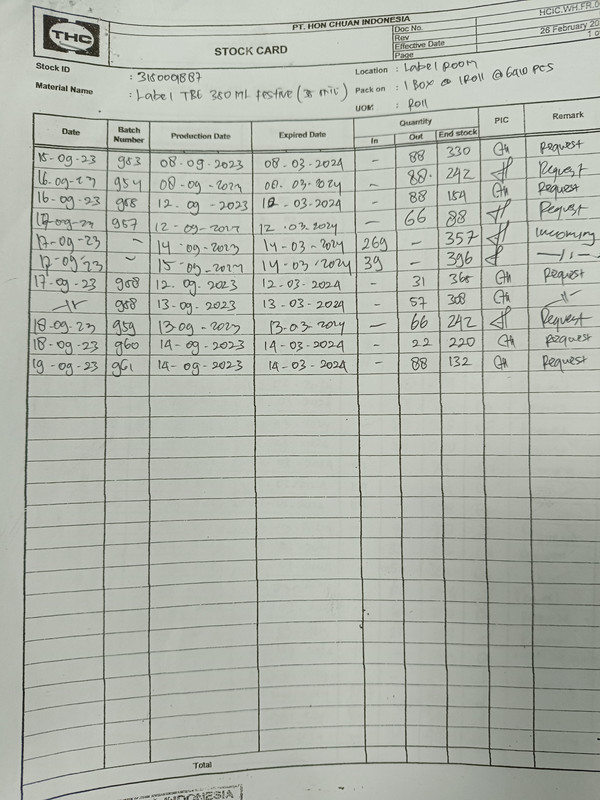 THC
PT. HON CHUAN INDONESIA
STOCK CARD
Doc No.
HCIC.WH.FR.0
Rev
Effective Date
26 February 20
Page
1 o
Stock ID : 3180009887
Location : Label Room
Material Name : Label TBE 350 ML Festive (38 mic)
Pack on : 1 BOX @ 1Roll @ 6410 PCS
UOM : Roll
Date Batch Number Production Date Expired Date Quantity In Out End stock PIC Remark
15-09-23 953 08-09-2023 08-03-2024 - 88 330 Request
16-09-23 954 08-09-2023 08-03-2024 - 88 242 Request
16-09-23 958 12-09-2023 12-03-2024 - 88 154 Request
17-09-23 957 12-09-2023 12-03-2024 - 66 88 Request
17-09-23 - 14-09-2023 14-03-2024 269 - 357 Incoming
17-09-23 - 15-09-2023 14-03-2024 39 - 396 -"-
17-09-23 958 12-09-2023 12-03-2024 - 31 365 Request
-"- 958 13-09-2023 13-03-2024 - 57 308 -"-
18-09-23 959 13-09-2023 13-03-2024 - 66 242 Request
18-09-23 960 14-09-2023 14-03-2024 - 22 220 Request
19-09-23 961 14-09-2023 14-03-2024 - 88 132 Request
Total
INDONESIA